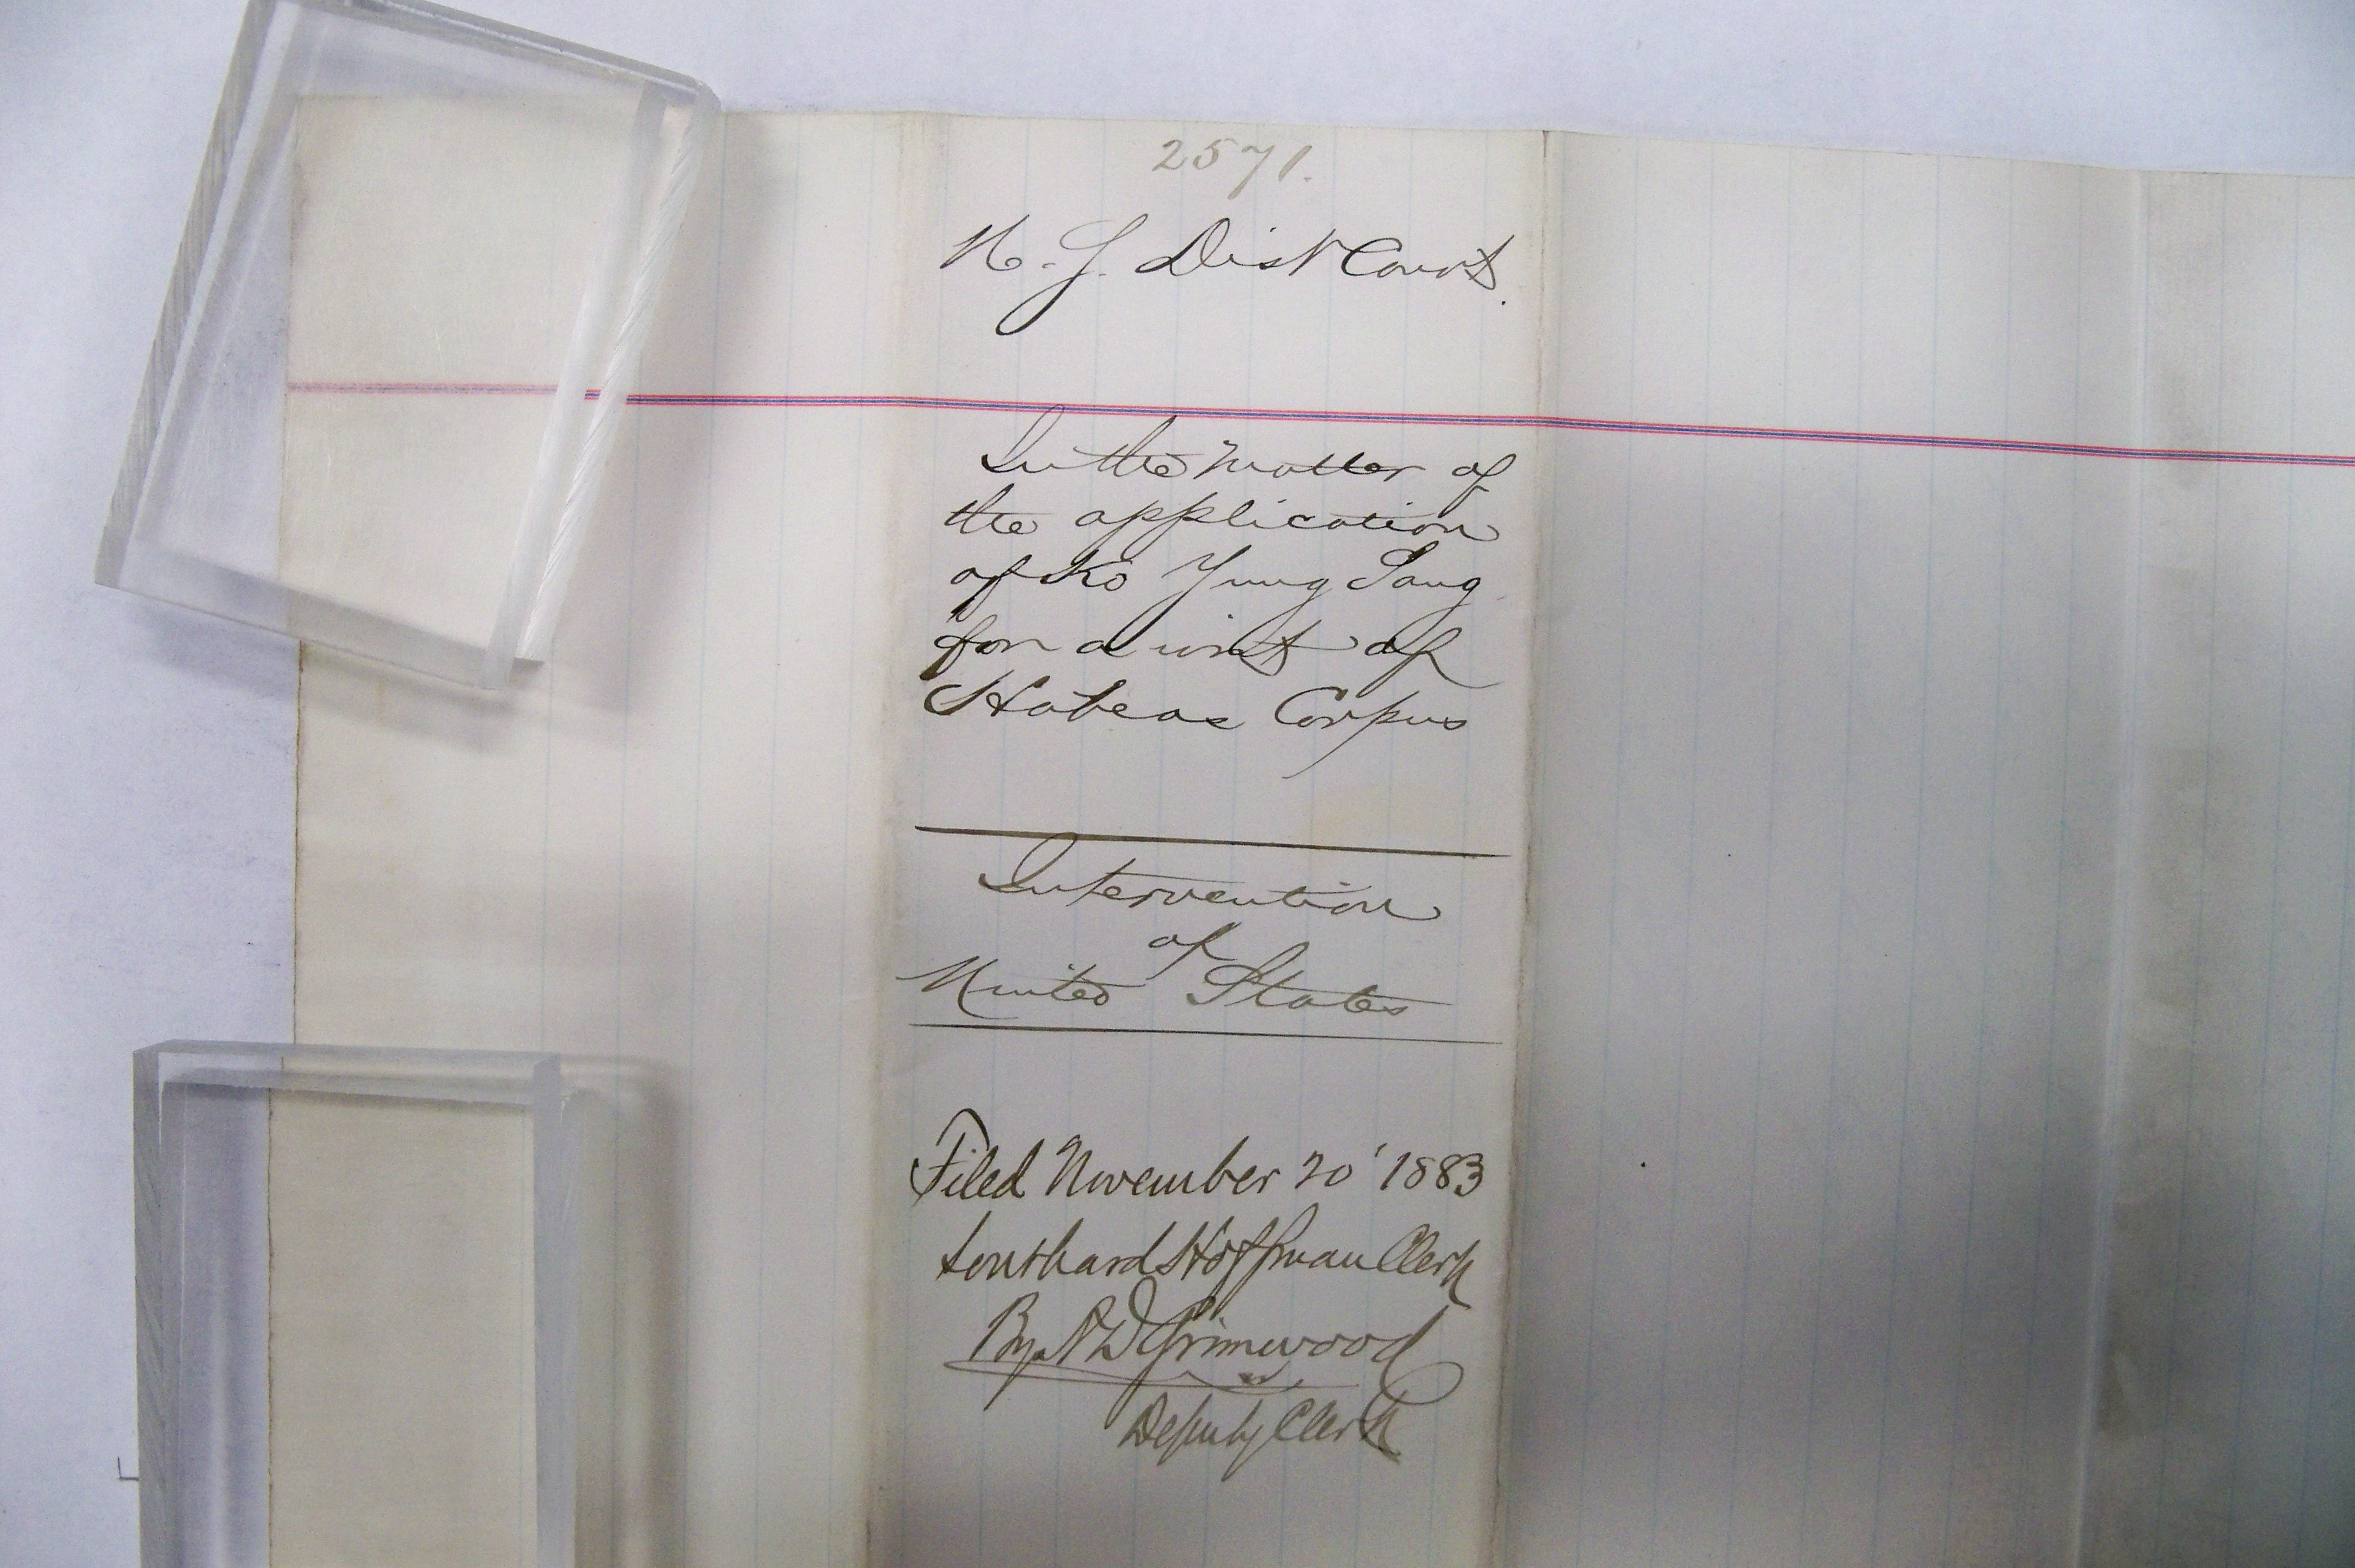 2571.
U. S. Dist Court.
In the matter of
the application
of Ko Yung Sang
for a writ of
Habeas Corpus
Intervention
of
United States
Filed November 20' 1883
Southard Hoffman Clerk
By Grimwood
Deputy Clerk